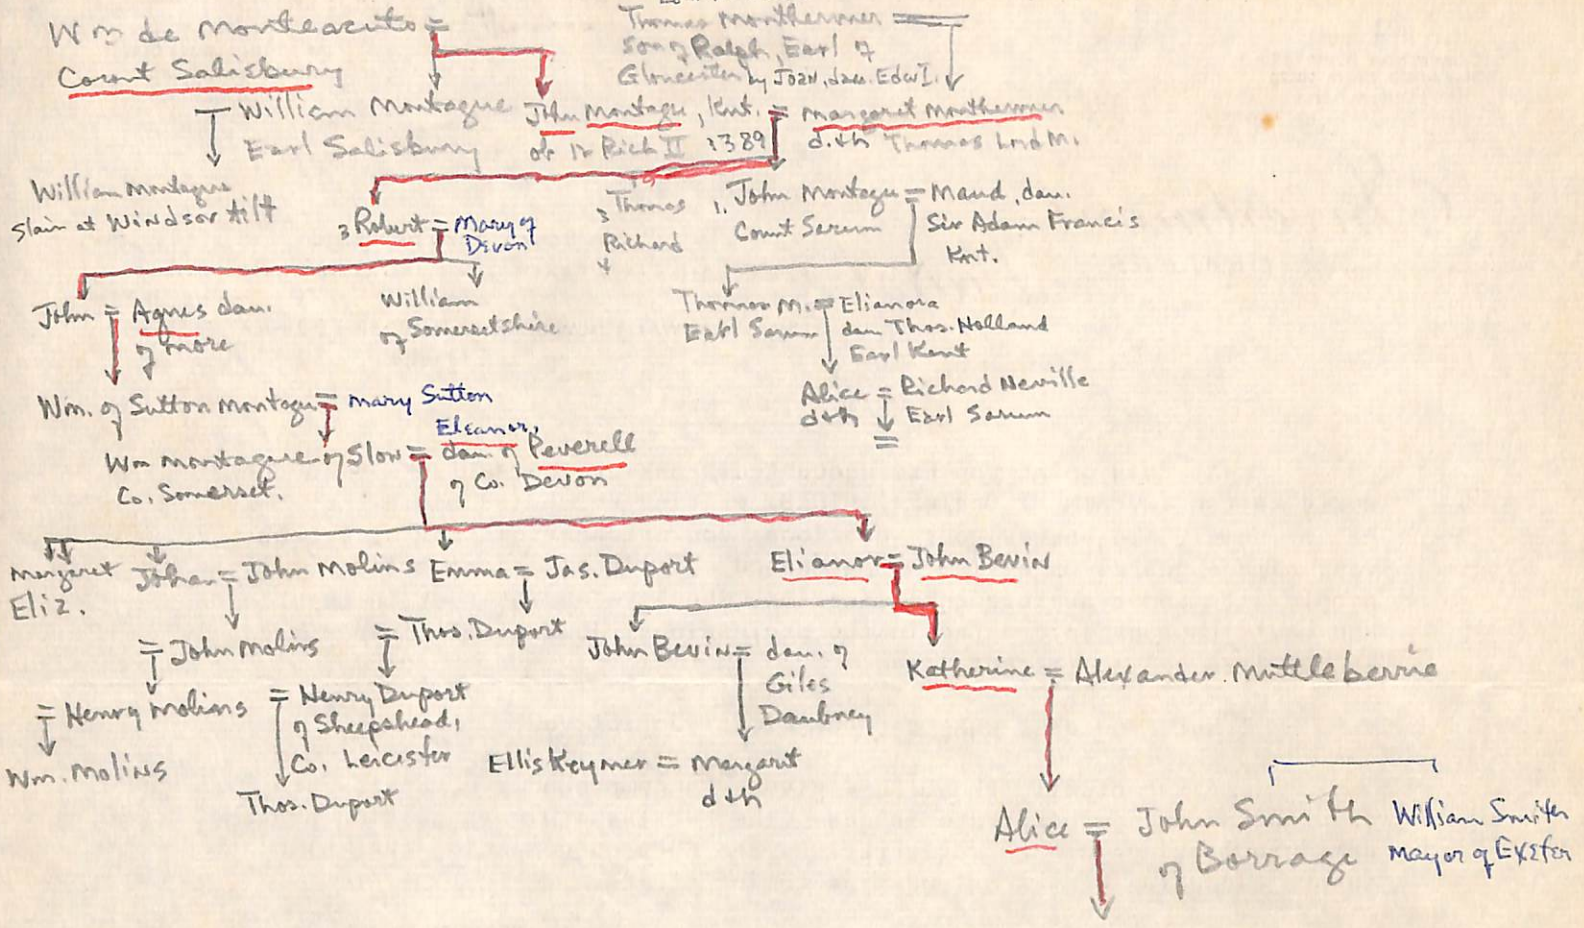 Wm de Monteacuto =
Count Salisbury
Thomas Monthermer =
son of Ralph, Earl of
Gloucester by Joan, dau. Edw I.
William Montague
Earl Salisbury
John Montagu, Knt. = Margaret Monthermer
ob 12 Rich II 1389 d.+h Thomas Lord M.
William Montague
slain at Windsor tilt
3 Robert = Mary of
Divon
3 Thomas
Richard
1. John Montague = Maud, dau.
Count Sarum Sir Adam Francis
Knt.
John = Agnes dau.
of More
William
of Somersetshire
Thomas M. = Elianora
Earl Sarum dau Thos. Holland
Earl Kent
Alice = Richard Neville
d+h Earl Sarum
Wm. of Sutton Montagu = Mary Sutton
Eleanor,
Wm Montague of Slow = dau. of Peverell
Co. Somerset. of Co. Devon
Margaret Johan = John Molins Emma = Jas. Duport Elianor = John Bevin
Eliz.
= John Molins = Thos. Duport John Bevin = dau. of
Giles
Daubney
Katherine = Alexander Muttleberrie
= Henry Molins = Henry Duport
of Sheepshead,
Co. Leicester
Wm. Molins
Thos. Duport
Ellis Keymer = Margarit
d+h
Alice = John Smith
of Borrage
William Smith
Mayor of Exeter